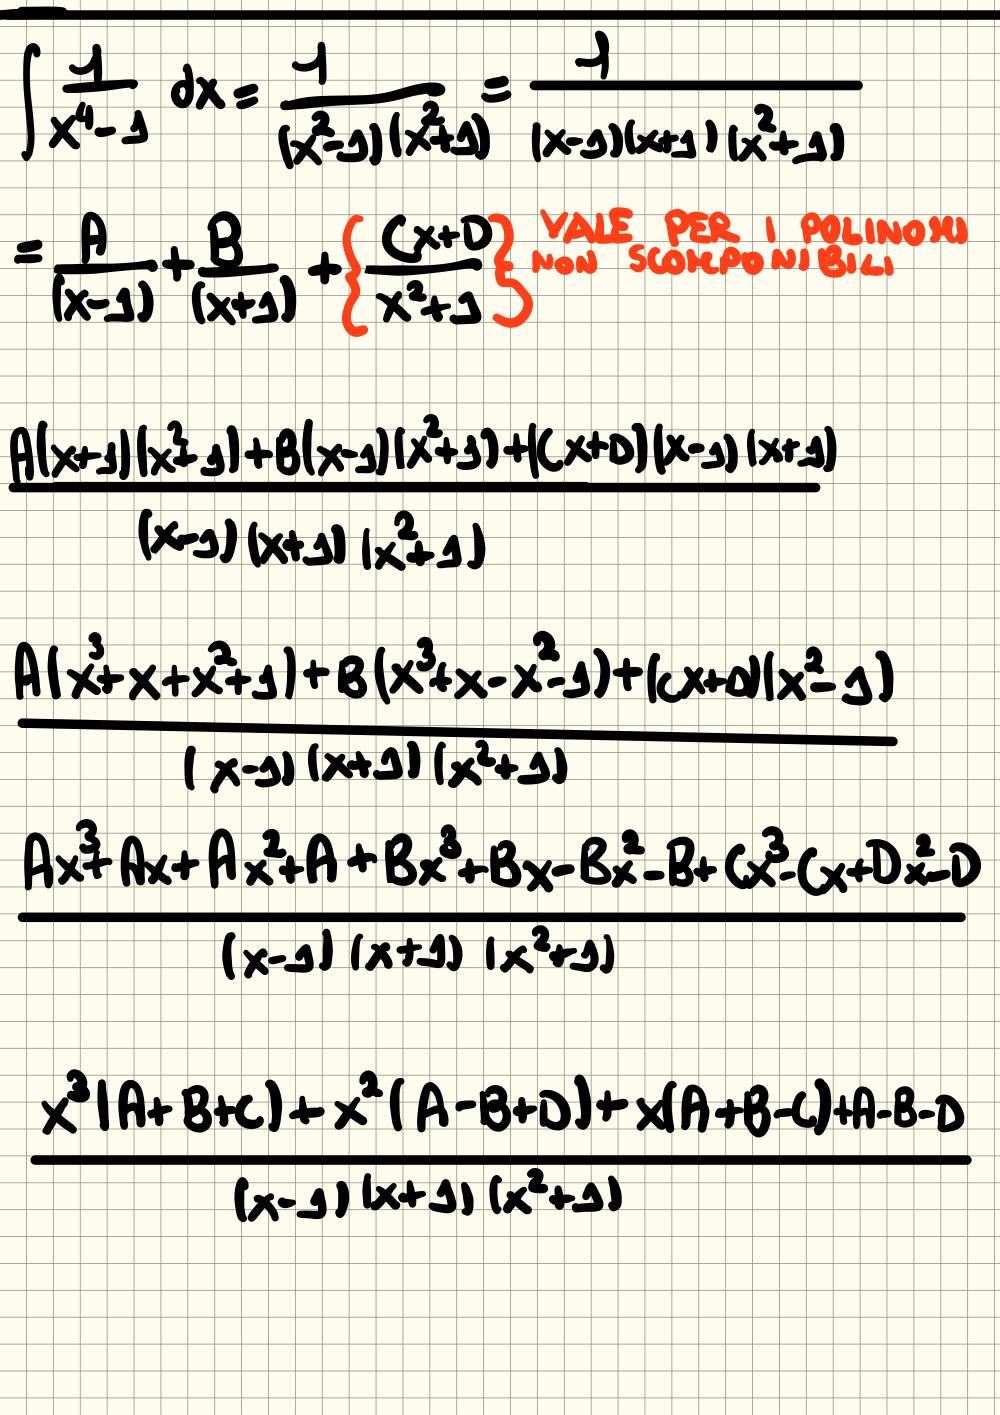 ∫ 1/(x⁴-1) dx = 1/((x²-1)(x²+1)) = 1/((x-1)(x+1)(x²+1))
= A/(x-1) + B/(x+1) + { (Cx+D)/(x²+1) } VALE PER I POLINOMI
NON SCOMPONIBILI
A(x+1)(x²+1)+B(x-1)(x²+1)+(Cx+D)(x-1)(x+1)
(x-1)(x+1)(x²+1)
A(x³+x+x²+1)+B(x³+x-x²-1)+(Cx+D)(x²-1)
(x-1)(x+1)(x²+1)
Ax³+Ax+Ax²+A+Bx³+Bx-Bx²-B+Cx³-Cx+Dx²-D
(x-1)(x+1)(x²+1)
x³(A+B+C)+x²(A-B+D)+x(A+B-C)+A-B-D
(x-1)(x+1)(x²+1)